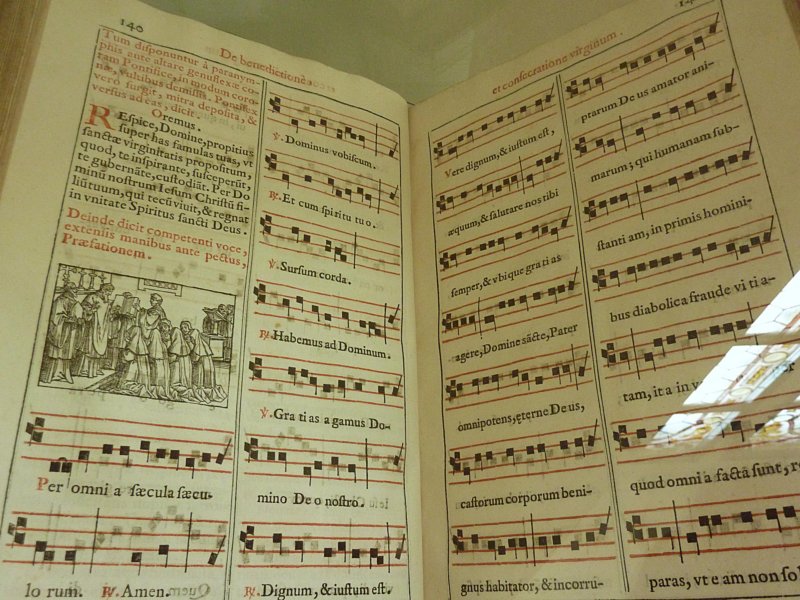 140
De benedictione
Tum disponuntur à paranym-
phis ante altare genuflexæ co-
ram Pontifice, in modum coro-
næ, vultibus demissis. Pontifex
vero surgit, mitra deposita, &
versus ad eas, dicit.
Oremus.
REspice, Domine, propitius
super has famulas tuas, vt
sanctæ virginitatis propositum,
quod, te inspirante, susceperūt,
te gubernāte, custodiāt. Per Do
minū nostrum Iesum Christū fi-
liū tuum, qui tecū viuit, & regnat
in vnitate Spiritus sancti Deus.
Deinde dicit competenti voce,
extensis manibus ante pectus,
Præfationem.
Per omni a sæcula sæcu-
lo rum. ℟. Amen.
℣. Dominus vobiscum.
℟. Et cum spiritu tuo.
℣. Sursum corda.
℟. Habemus ad Dominum.
℣. Gra ti as a gamus Do-
mino De o nostro.
℟. Dignum, & iustum est.
et consecratione virginum.
Vere dignum, & iustum est,
æquum, & salutare nos tibi
semper, & vbique gra ti as
agere, Domine sācte, Pater
omnipotens, ęterne De us,
castorum corporum beni-
gnus habitator, & incorru-
ptarum De us amator ani-
marum; qui humanam sub-
stanti am, in primis homini-
bus diabolica fraude vi ti a-
tam, it a in
quod omni a factā sunt,
paras, vt e am non sol